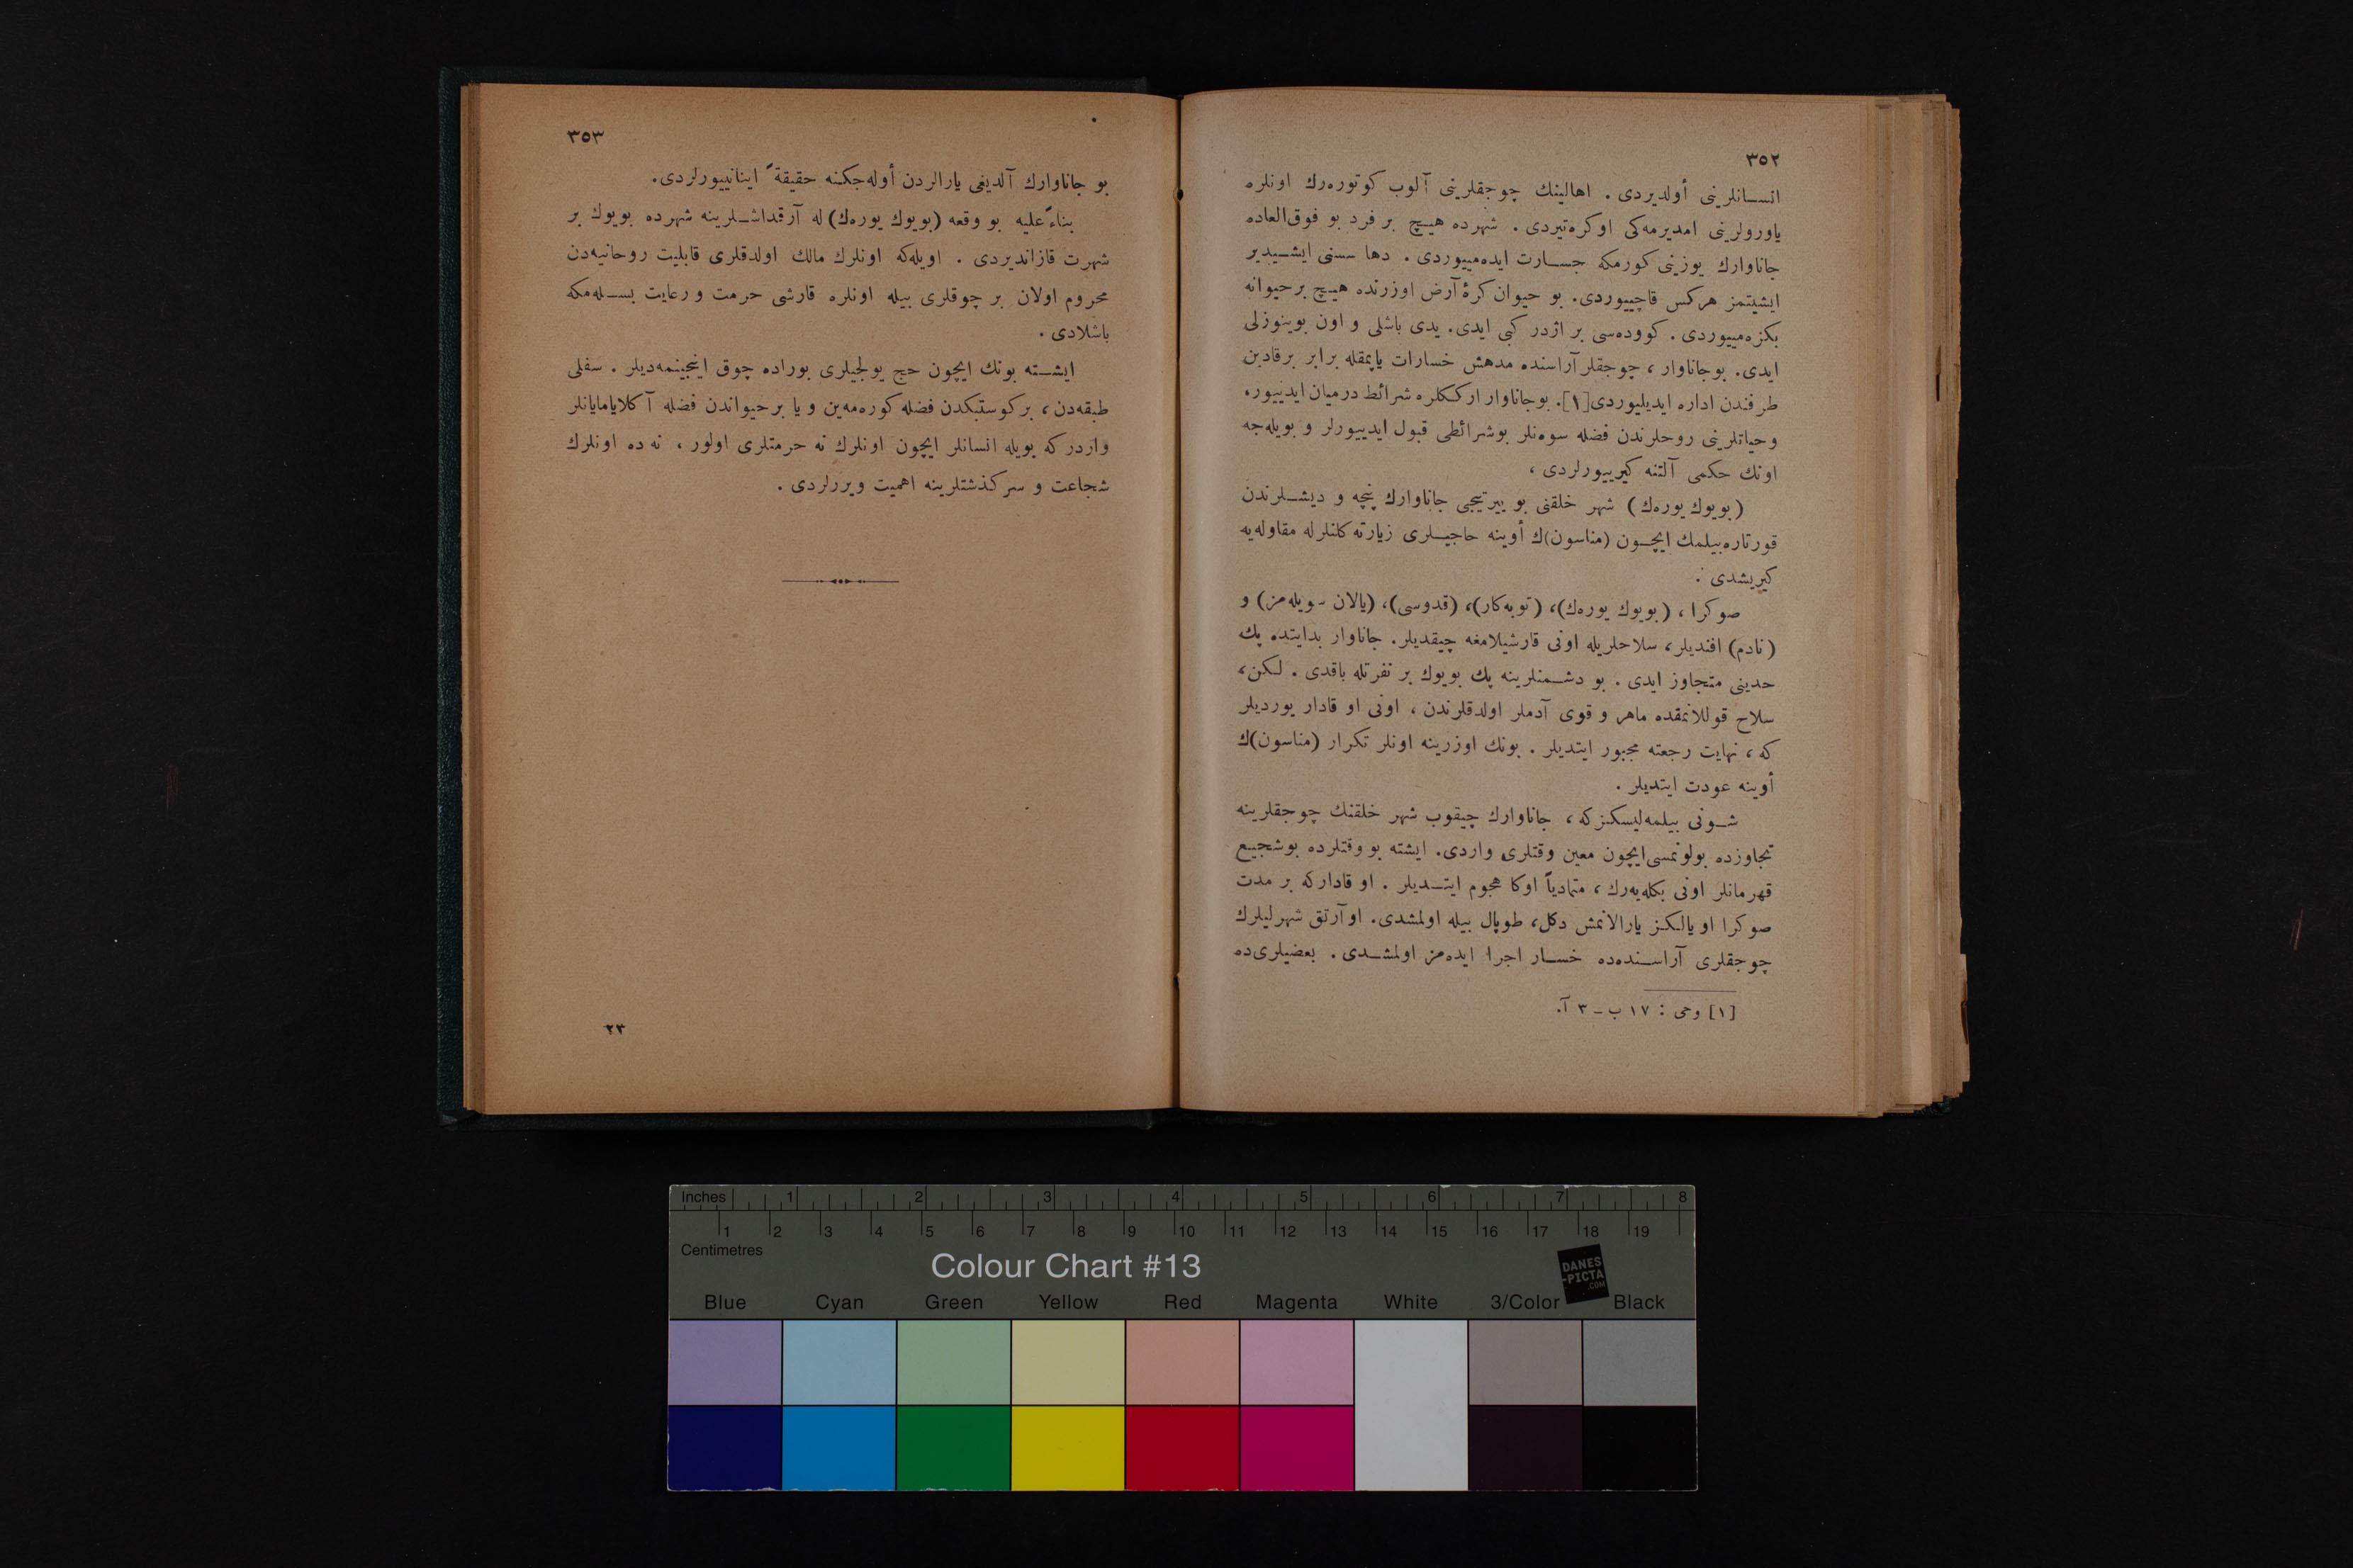 ٣٥٢
انسانلرینی أولدیردی . اهالینك چوجقلرینی آلوب كوتوره‌رك اونلره
یاورولرینی امدیرمه‌كی اوكره‌تیردی . شهرده هیچ بر فرد بو فوق‌العاده
جاناوارك یوزینی كورمكه جسارت ایده‌مییوردی . دها سسنی ایشیدیر
ایشیتمز هركس قاچییوردی. بو حیوان كرۀ آرض اوزرنده هیچ برحیوانه
بكزه‌مییوردی . كووده‌سی بر اژدر كبی ایدی. یدی باشلی و اون بوینوزلی
ایدی. بوجاناوار ، چوجقلر آراسنده مدهش خسارات یاپمقله برابر برقادین
طرفندن اداره ایدیلیوردی[١]. بوجاناوار ارككلره شرائط درمیان ایدییور،
وحیاتلرینی روحلرندن فضله سوه‌نلر بوشرائطی قبول ایدییورلر و بویله‌جه
اونك حكمی آلتنه كیرییورلردی ،
(بویوك یوره‌ك) شهر خلقنی بو ییرتیجی جاناوارك پنچه و دیشلرندن
قورتاره‌بیلمك ایچون (مناسون)ك أوینه حاجیلری زیارته كلنلرله مقاوله‌یه
كیریشدی .
صوكرا ، (بویوك یوره‌ك)، (توبه‌كار)، (قدوسی)، (یالان سویله‌مز) و
(نادم) افندیلر، سلاحلریله اونی قارشیلامغه چیقدیلر. جاناوار بدایتده پك
حدینی متجاوز ایدی . بو دشمنلرینه پك بویوك بر نفرتله باقدی . لكن،
سلاح قوللانمقده ماهر و قوی آدملر اولدقلرندن ، اونی او قادار یوردیلر
كه ، نهایت رجعته مجبور ایتدیلر . بونك اوزرینه اونلر تكرار (مناسون)ك
أوینه عودت ایتدیلر .
شونی بیلمه‌لیسكزكه ، جاناوارك چیقوب شهر خلقنك چوجقلرینه
تجاوزده بولونمسی‌ایچون معین وقتلری واردی. ایشته بو وقتلرده بوشجیع
قهرمانلر اونی بكله‌یه‌رك ، متمادیاً اوكا هجوم ایتدیلر . او قاداركه بر مدت
صوكرا او یالكز یارالانمش دكل، طوپال بیله اولمشدی. او آرتق شهرلیلرك
چوجقلری آراسنده‌ده خسار اجرا ایده‌مز اولمشدی . بعضیلری‌ده
[١] وحی : ١٧ ب – ٣ آ.
٣٥٣
بو جاناوارك آلدیغی یارالردن أوله‌جكنه حقیقةً اینانییورلردی.
بناءً‌علیه بو وقعه (بویوك یوره‌ك) له آرقداشلرینه شهرده بویوك بر
شهرت قازاندیردی . اویله‌كه اونلرك مالك اولدقلری قابلیت روحانیه‌دن
محروم اولان بر چوقلری بیله اونلره قارشی حرمت و رعایت بسله‌مكه
باشلادی .
ایشته بونك ایچون حج یولجیلری بوراده چوق اینجینمه‌دیلر . سفلی
طبقه‌دن ، بر كوستبكدن فضله كوره‌مه‌ین و یا بر حیواندن فضله آكلایامایانلر
واردر كه بویله انسانلر ایچون اونلرك نه حرمتلری اولور ، نه ده اونلرك
شجاعت و سركذشتلرینه اهمیت ویررلردی .
٢٣
Inches 1 2 3 4 5 6 7 8
1 2 3 4 5 6 7 8 9 10 11 12 13 14 15 16 17 18 19
Centimetres
Colour Chart #13
DANES
-PICTA
.COM
Blue Cyan Green Yellow Red Magenta White 3/Color Black